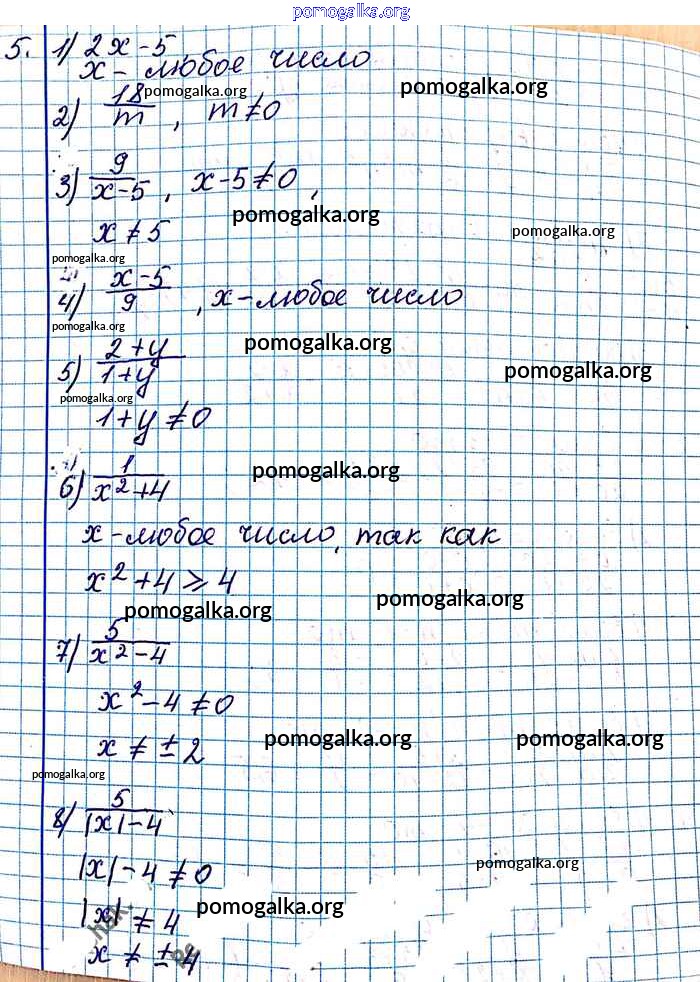 pomogalka.org
5. 1) 2x-5
x - любое число
pomogalka.org
pomogalka.org
2) 18/m, m≠0
3) 9/(x-5), x-5≠0,
pomogalka.org
x≠5
pomogalka.org
pomogalka.org
4) (x-5)/9, x - любое число
pomogalka.org
pomogalka.org
5) (2+y)/(1+y)
pomogalka.org
pomogalka.org
1+y≠0
6) 1/(x²+4)
pomogalka.org
x - любое число, так как
x²+4⩾4
pomogalka.org
pomogalka.org
7) 5/(x²-4)
x²-4≠0
x≠±2
pomogalka.org
pomogalka.org
pomogalka.org
8) 5/(|x|-4)
|x|-4≠0
pomogalka.org
|x|≠4
pomogalka.org
x≠±4